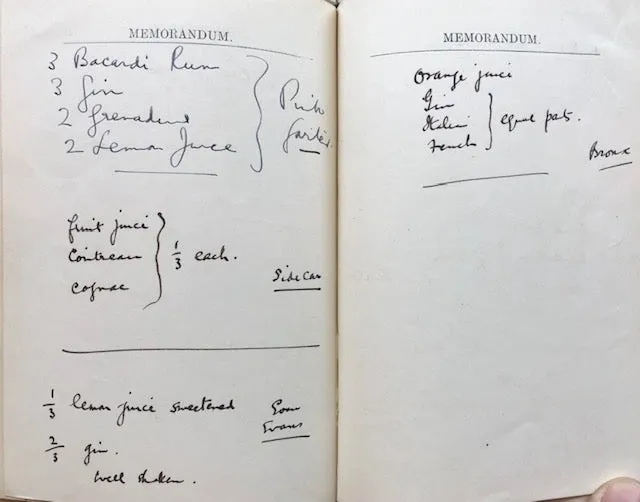 MEMORANDUM.
3 Bacardi Rum
3 Gin
2 Grenadine
2 Lemon Juice
Pink
Garter
fruit juice
Cointreau
Cognac
1/3 each.
Sidecar
1/3 lemon juice sweetened
2/3 gin.
well shaken.
Evans
MEMORANDUM.
Orange juice
Gin
Italian
French
equal parts.
Bronx